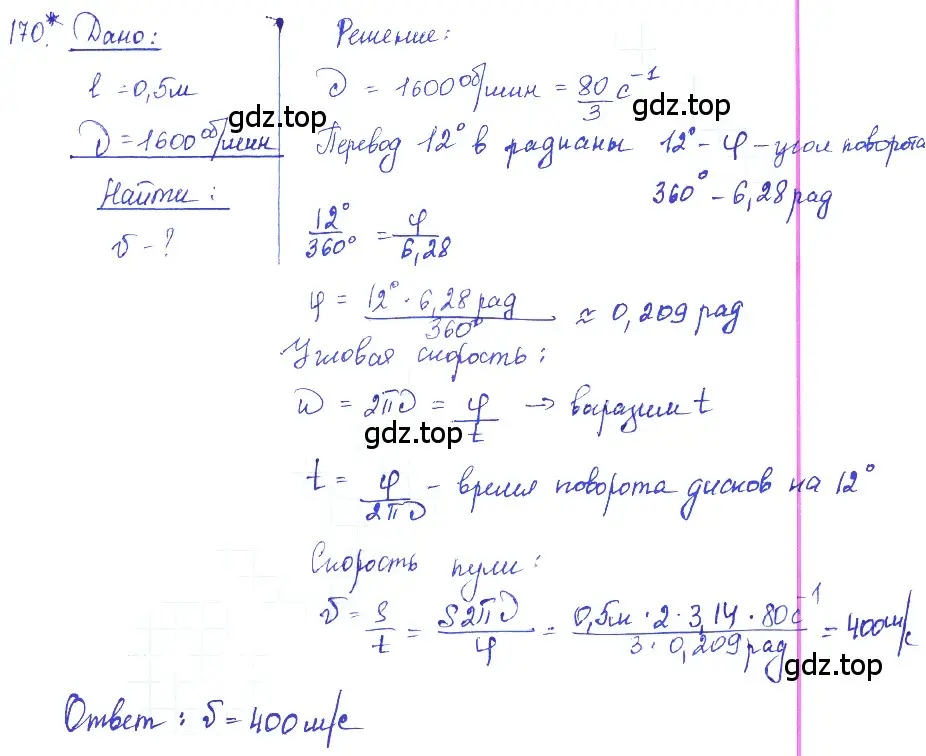 170.* Дано:
l = 0,5м
gdz.top
ϑ = 1600 об/мин
Найти:
υ - ?
Решение:
ϑ = 1600 об/мин = 80/3 с⁻¹
gdz.top
Перевод 12° в радианы 12° - φ - угол поворота
360° - 6,28 рад
12°/360° = φ/6,28
φ = 12° · 6,28 рад/360° ≈ 0,209 рад
Угловая скорость:
ω = 2πϑ = φ/t → выразим t
gdz.top
t = φ/2πϑ - время поворота дисков на 12°
Скорость пули:
υ = S/t = S2πϑ/φ = 0,5м · 2 · 3,14 · 80с⁻¹/3 · 0,209 рад = 400м/с
gdz.top
Ответ: υ = 400 м/с